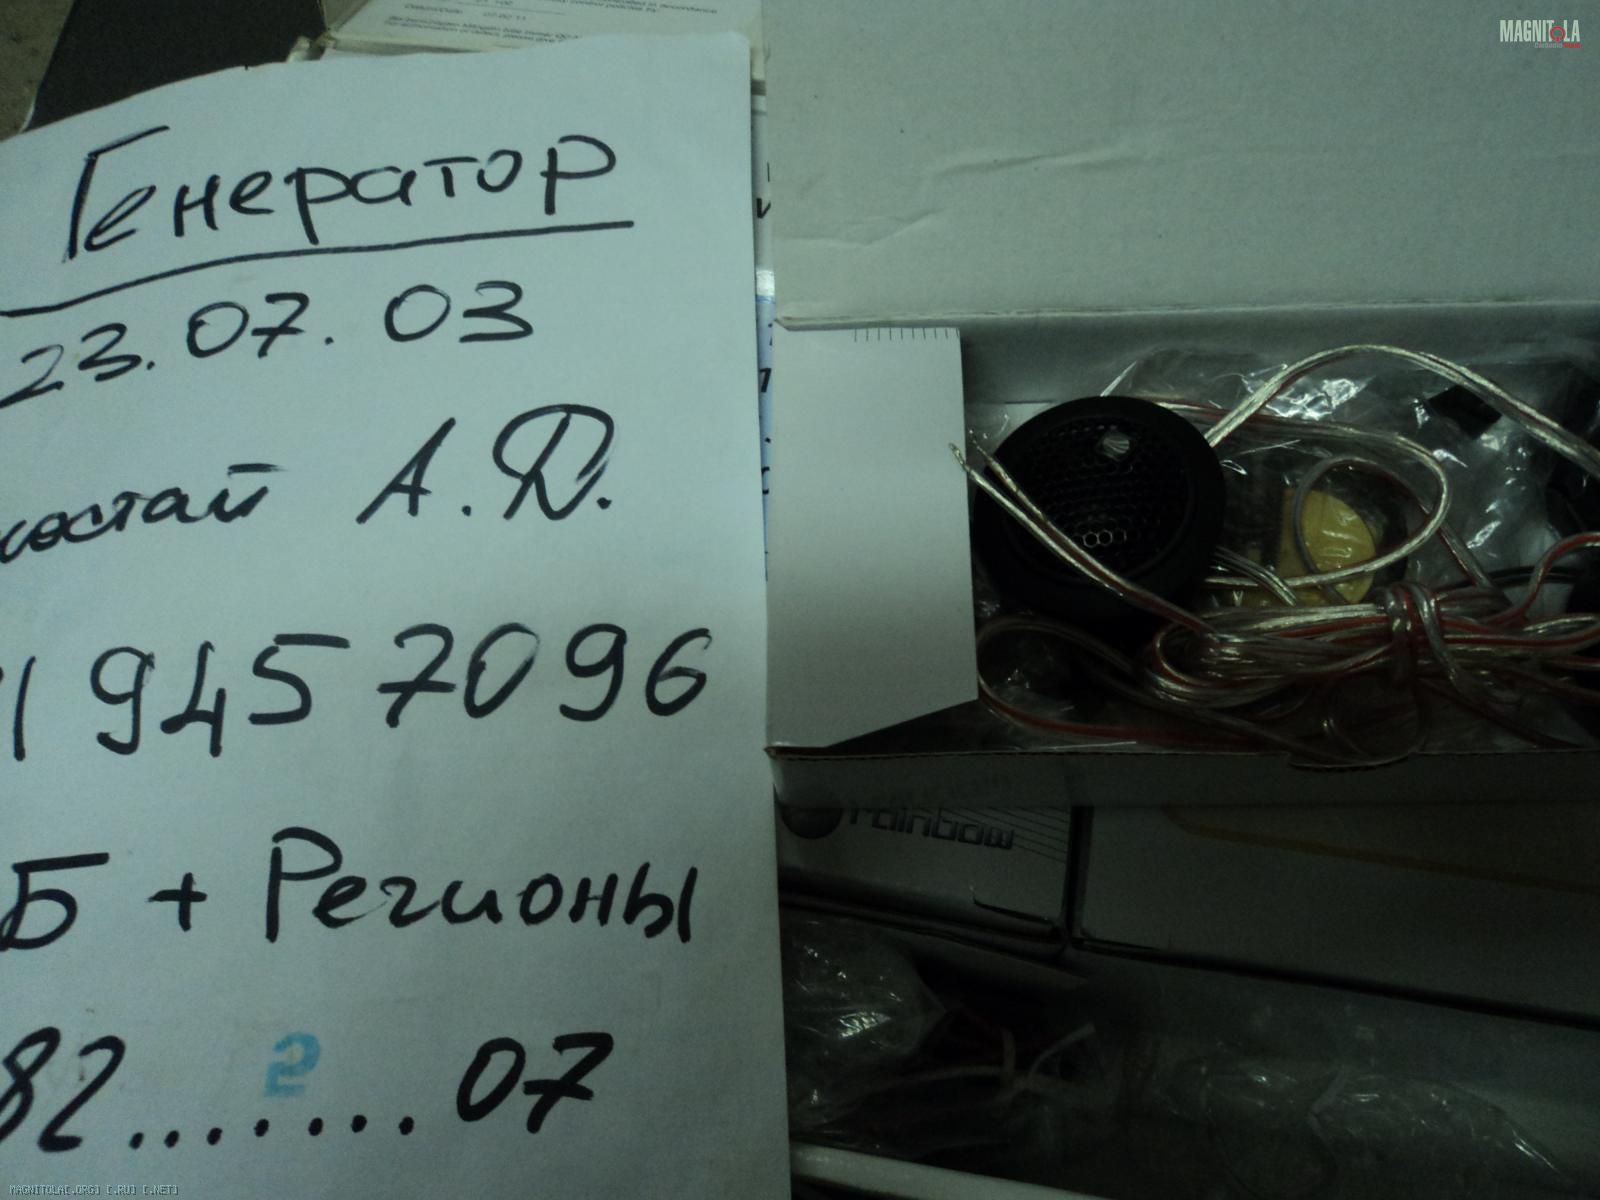 MAGNITOLA
Генератор
23.07.03
А.Д.
9457096
Б + Регионы
82.......07
rainbow
MAGNITOLA[.ORG] [.RU] [.NET]